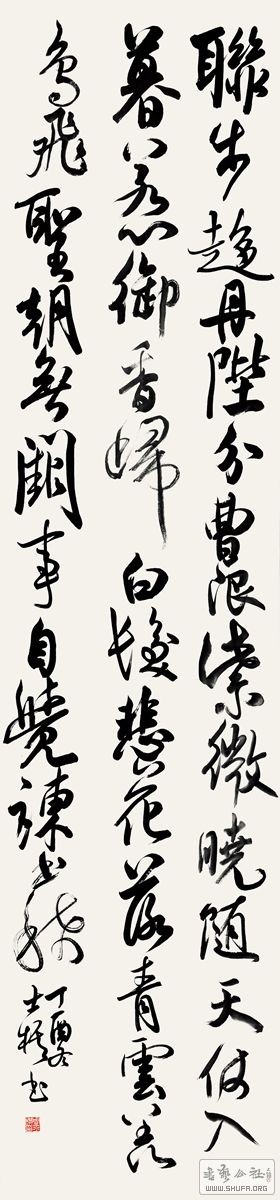 聯步趨丹陛分曹限紫微曉随天仗入
暮惹御香歸白髮悲花落青雲羨
鳥飛聖朝無闕事自覺諫書稀
丁酉冬
士書
书艺公社
WWW.SHUFA.ORG